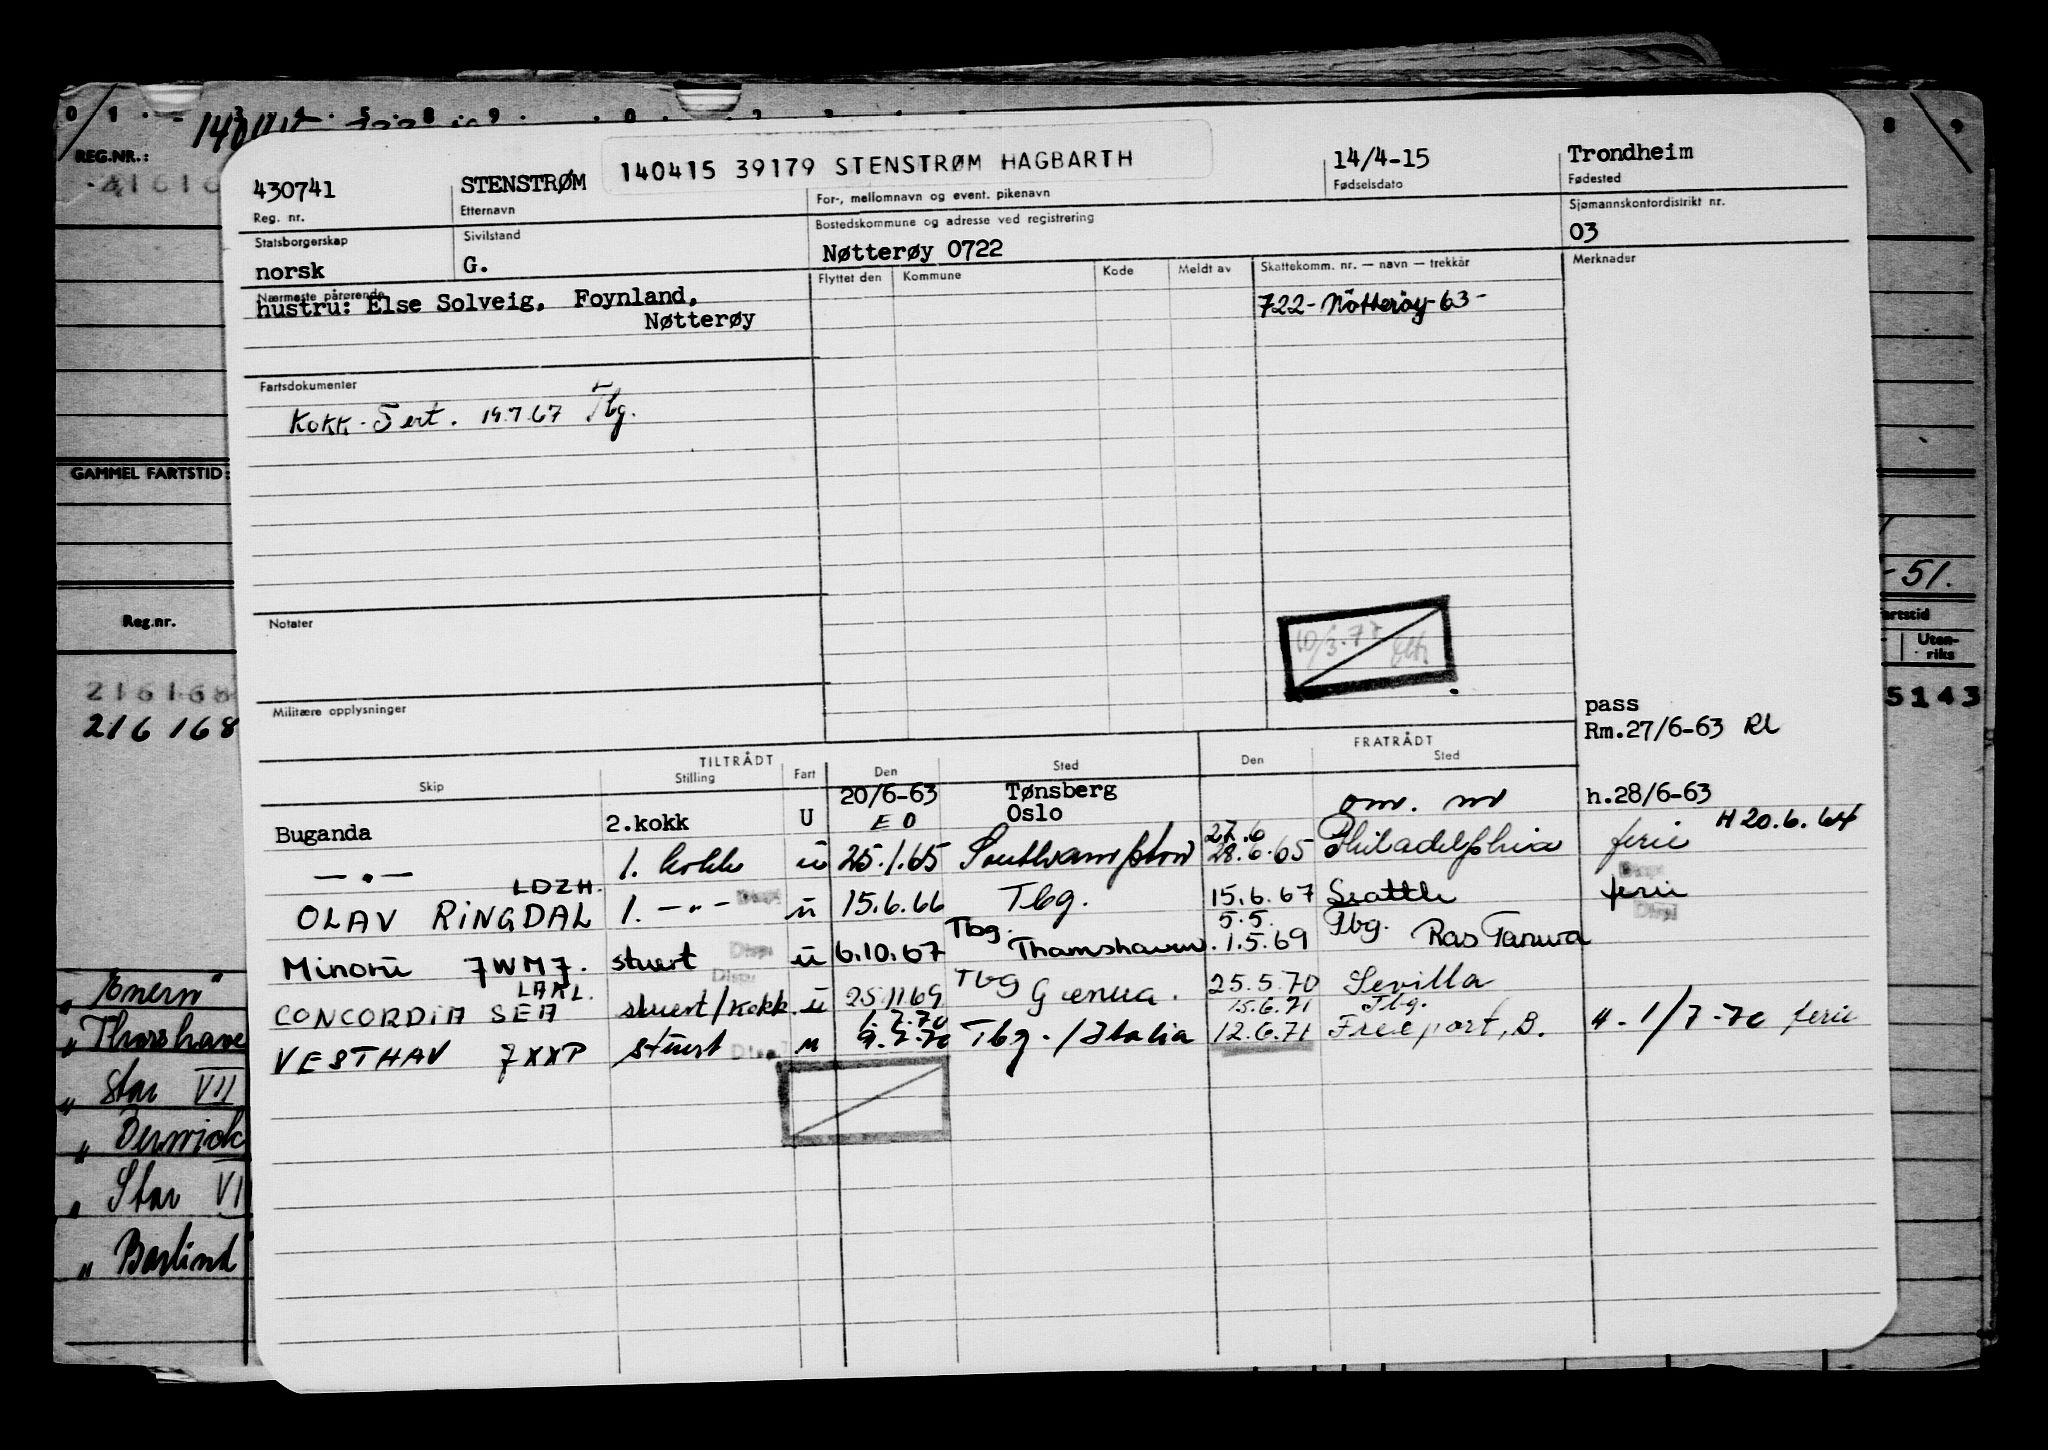 REG.NR.:
GAMMEL FARTSTID:
Reg.nr.
216168
216 168
Thorshave
Star VII
Star VI
- 51.
artstid
Uten-
riks
5143
140415 39179 STENSTRØM HAGBARTH
430741 STENSTRØM 14/4-15 Trondheim
Reg. nr. Etternavn For-, mellomnavn og event. pikenavn Fødselsdato Fødested
Statsborgerskap Sivilstand Bostedskommune og adresse ved registrering Sjømannskontordistrikt nr.
norsk G. Nøtterøy 0722 03
Nærmeste pårørende Flyttet den Kommune Kode Meldt av Skattekomm. nr. — navn — trekkår Merknader
hustru: Else Solveig, Foynland,
Nøtterøy
722- Nøtterøy-63-
Fartsdokumenter
Kokk-Sert. 19.7.67 Tbg.
Notater
Militære opplysninger
pass
Rm.27/6-63 RL
TILTRÅDT FRATRÅDT
Skip Stilling Fart Den Sted Den Sted
20/6-63 Tønsberg
Buganda 2.kokk U E O Oslo om. nd h.28/6-63
H 20.6.64
27.6
— " — 1. kokk u 25.1.65 Southampton 28.6.65 Philadelphia ferie
LDZH.
OLAV RINGDAL 1. — " — u 15.6.66 Tbg. 15.6.67 Seattle ferie
Tbg. 5.5. Tbg.
Minoru 7WM7. stuert u 6.10.67 Thamshavn. 1.5.69 Ras Tanura
LAKL. Tbg
CONCORDIA SEA stuert/kokk u 25.11.69 Genua. 25.5.70 Sevilla
1.7.70 15.6.71 Tbg.
VESTHAV 7XXP stuert u 4.7.70 Tbg./Italia 12.6.71 Freeport, B. H. 1/7-70 ferie